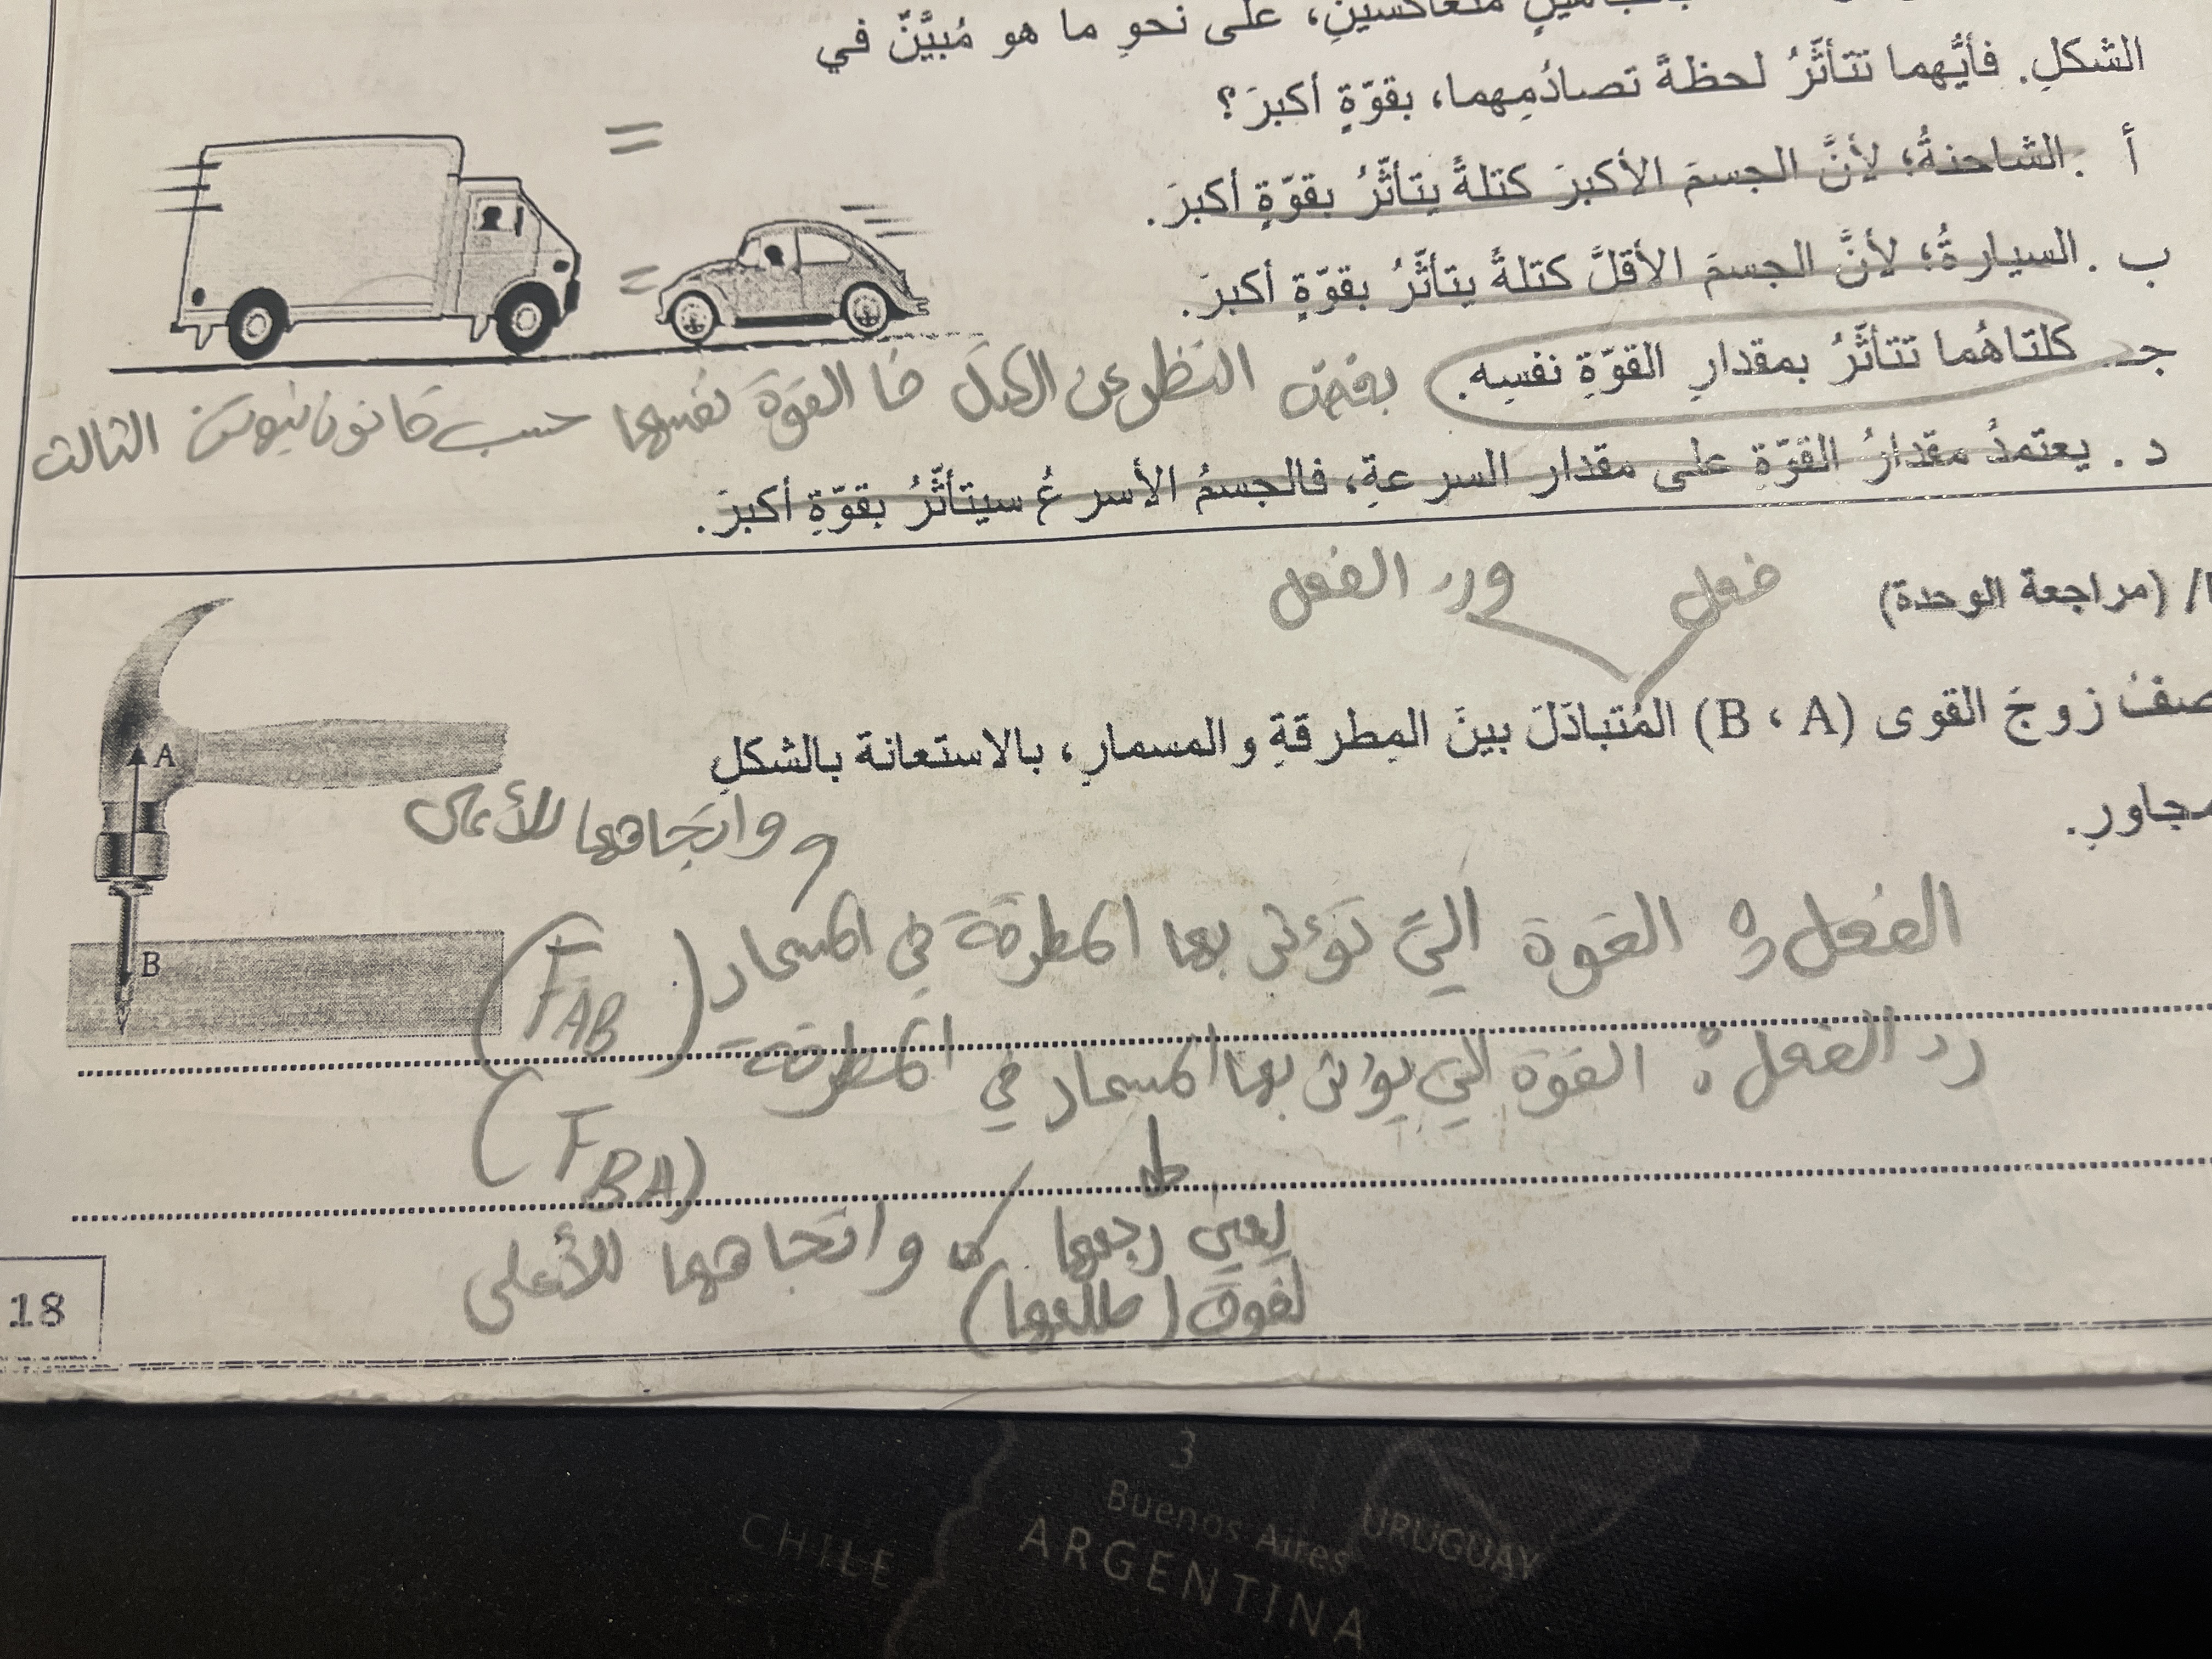 متعاكسين، على نحوِ ما هو مُبيَّنٌ في
الشكلِ. فأيُّهما تتأثَّرُ لحظةَ تصادُمِهما، بقوّةٍ أكبرَ؟
أ . الشاحنةُ؛ لأنَّ الجسمَ الأكبرَ كتلةً يتأثَّرُ بقوّةٍ أكبرَ.
ب . السيارةُ؛ لأنَّ الجسمَ الأقلَّ كتلةً يتأثَّرُ بقوّةٍ أكبرَ.
جـ كلتاهُما تتأثَّرُ بمقدارِ القوّةِ نفسِهِ. بغض النظر عن الكتل فا القوة نفسها حسب قانون نيوتن الثالث
د . يعتمدُ مقدارُ القوّةِ على مقدار السرعةِ، فالجسمُ الأسرعُ سيتأثَّرُ بقوّةٍ أكبرَ.
=
=
/ (مراجعة الوحدة)
فعل ورد الفعل
صفْ زوجَ القوى (B ، A) المُتبادَلَ بينَ المِطرقةِ والمسمارِ، بالاستعانة بالشكلِ
مجاورِ.
A
B
واتجاهها للأعلى
الفعل: القوة التي تؤثر بها المطرقة في المسمار (F AB)
رد الفعل: القوة التي يؤثر بها المسمار في المطرقة
(F BA)
يعني رجعها
لفوق (طلعها)
واتجاهها للأعلى
18
3
Buenos Aires
URUGUAY
CHILE
ARGENTINA